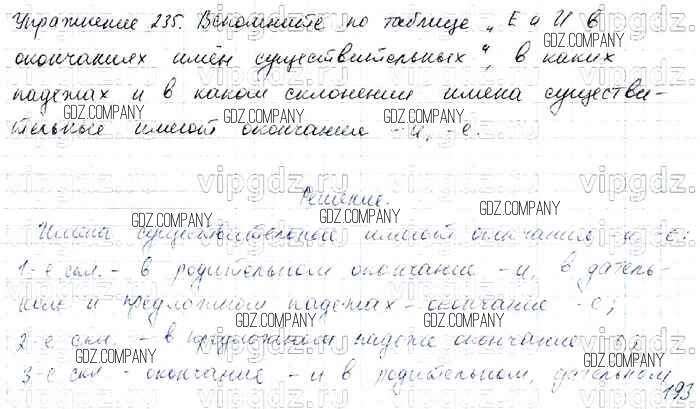 Упражнение 235. Вспомните по таблице „Е и И в
окончаниях имён существительных“, в каких
падежах и в каком склонении имена существи-
тельные имеют окончания -и, -е.
Решение.
Имена существительные имеют окончание -и, -е:
1-е скл. - в родительном окончание -и, в датель-
ном и предложном падежах - окончание -е;
2-е скл. - в предложном падеже окончание -е;
3-е скл - окончание -и в родительном, дательном
193
vipgdz.ru
GDZ.COMPANY